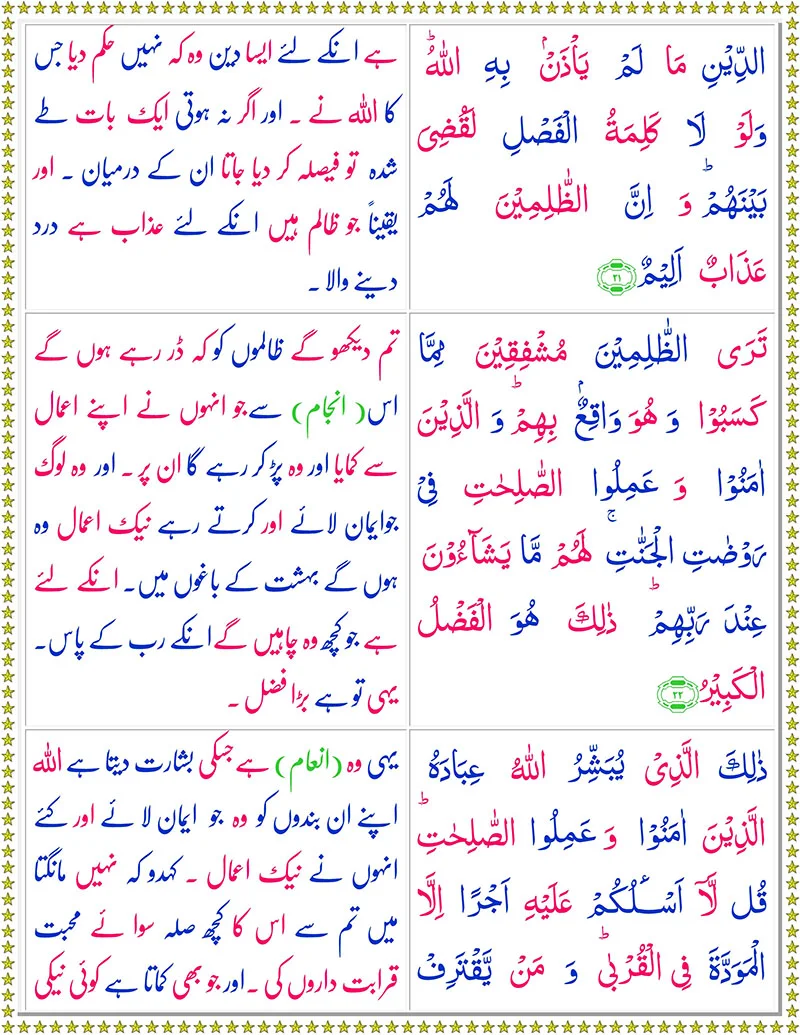 الدِّيۡنِ مَا لَمۡ يَاۡذَنۡۢ بِهِ اللّٰهُ‌ؕ
وَلَوۡ لَا كَلِمَةُ الۡفَصۡلِ لَقُضِىَ
بَيۡنَهُمۡ‌ؕ وَ اِنَّ الظّٰلِمِيۡنَ لَهُمۡ
عَذَابٌ اَلِيۡمٌ‏ ﴿۲۱﴾
ہے انکے لئے ایسا دین وہ کہ نہیں حکم دیا جس
کا اللہ نے ۔ اور اگر نہ ہوتی ایک بات طے
شدہ تو فیصلہ کر دیا جاتا ان کے درمیان ۔ اور
یقیناً جو ظالم ہیں انکے لئے عذاب ہے درد
دینے والا ۔
تَرَى الظّٰلِمِيۡنَ مُشۡفِقِيۡنَ مِمَّا
كَسَبُوۡا وَ هُوَ وَاقِعٌۢ بِهِمۡ‌ؕ وَ الَّذِيۡنَ
اٰمَنُوۡا وَ عَمِلُوا الصّٰلِحٰتِ فِىۡ
رَوۡضٰتِ الۡجَنّٰتِ‌ۚ لَهُمۡ مَّا يَشَآءُوۡنَ
عِنۡدَ رَبِّهِمۡ‌ؕ ذٰلِكَ هُوَ الۡفَضۡلُ
الۡكَبِيۡرُ‏ ﴿۲۲﴾
تم دیکھو گے ظالموں کو کہ ڈر رہے ہوں گے
اس (انجام) سے جو انہوں نے اپنے اعمال
سے کمایا اور وہ پڑ کر رہے گا ان پر ۔ اور وہ لوگ
جو ایمان لائے اور کرتے رہے نیک اعمال وہ
ہوں گے بہشت کے باغوں میں۔ انکے لئے
ہے جو کچھ وہ چاہیں گے انکے رب کے پاس۔
یہی تو ہے بڑا فضل ۔
ذٰلِكَ الَّذِىۡ يُبَشِّرُ اللّٰهُ عِبَادَهُ
الَّذِيۡنَ اٰمَنُوۡا وَ عَمِلُوا الصّٰلِحٰتِ‌ؕ
قُل لَّاۤ اَسۡـَٔـلُكُمۡ عَلَيۡهِ اَجۡرًا اِلَّا
الۡمَوَدَّةَ فِى الۡقُرۡبٰى‌ؕ وَ مَنۡ يَّقۡتَرِفۡ
یہی وہ (انعام) ہے جسکی بشارت دیتا ہے اللہ
اپنے ان بندوں کو وہ جو ایمان لائے اور کئے
انہوں نے نیک اعمال ۔ کہدو کہ نہیں مانگتا
میں تم سے اس کا کچھ صلہ سوائے محبت
قرابت داروں کی ۔ اور جو بھی کماتا ہے کوئی نیکی